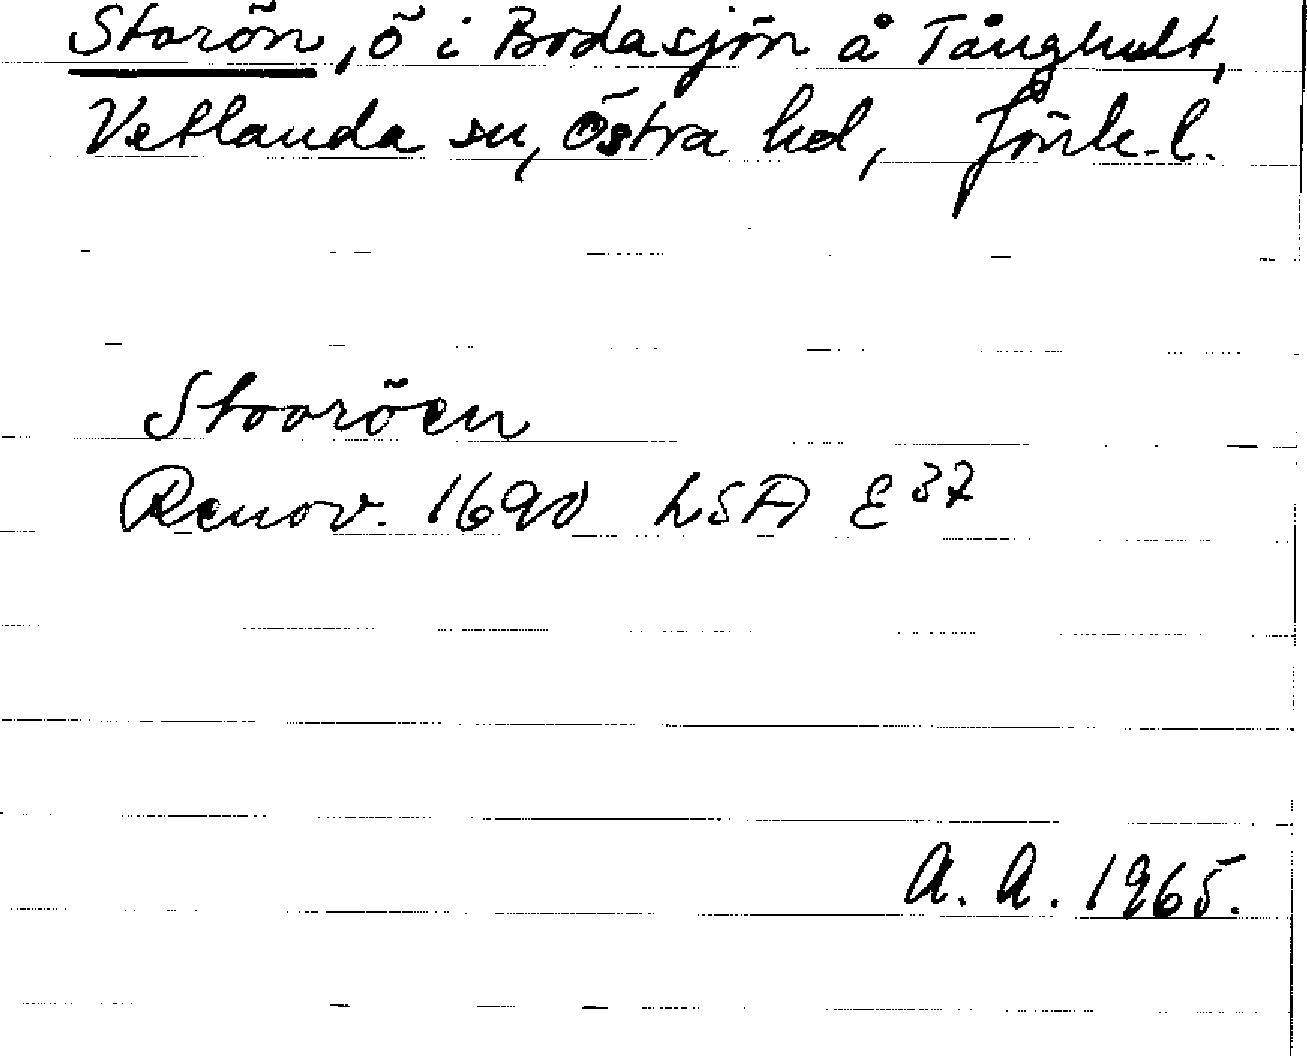 Storön, ö i Bodasjön å Tånghult,
Vetlanda sn, Östra hd, Jönk. l.
Stooröen
Renov. 1690 LSA E 37
A. A. 1965.